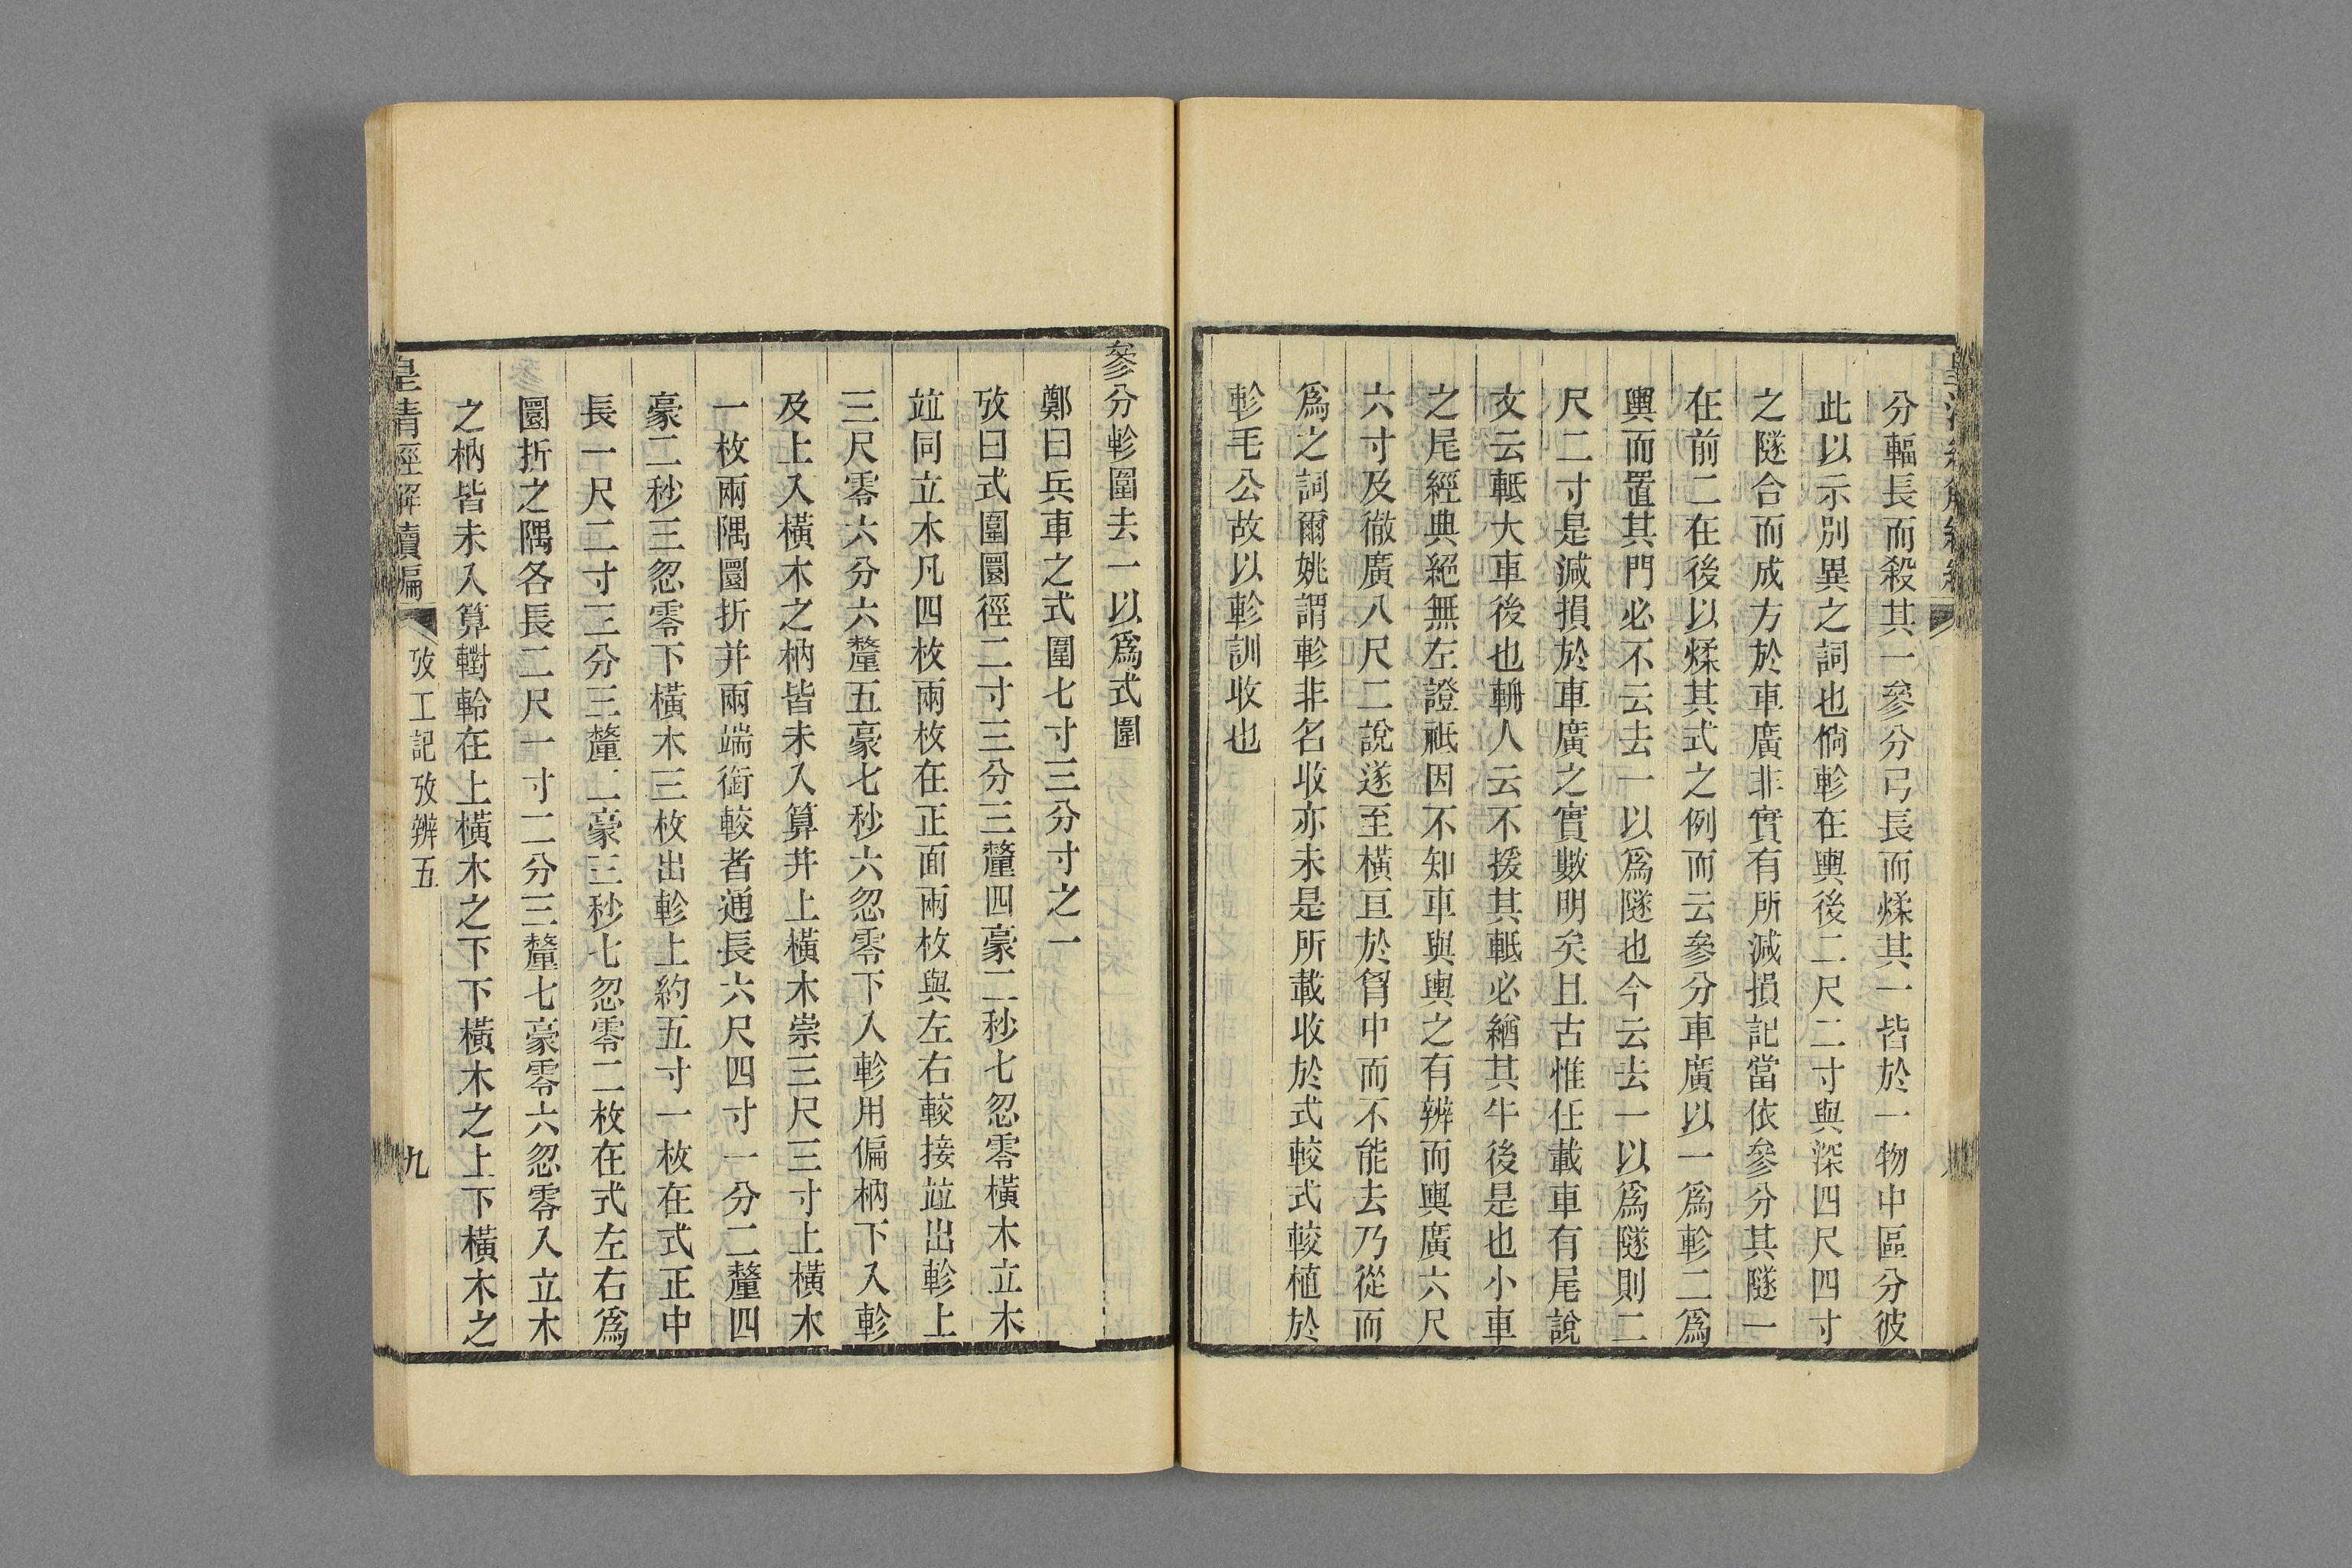 分輻長而殺其一參分弓長而煣其一皆於一物中區分彼
此以示別異之詞也倘軫在輿後二尺二寸與深四尺四寸
之隧合而成方於車廣非實有所減損記當依參分其隧一
在前二在後以煣其式之例而云參分車廣以一爲軫二爲
輿而置其門必不云去一以爲隧也今云去一以爲隧則二
尺二寸是減損於車廣之實數明矣且古惟任載車有尾說
文云軧大車後也輈人云不援其軧必緧其牛後是也小車
之尾經典絕無左證祇因不知車與輿之有辨而輿廣六尺
六寸及徹廣八尺二說遂至橫亙於胷中而不能去乃從而
爲之詞爾姚謂軫非名收亦未是所載收於式較式較植於
軫毛公故以軫訓收也
參分軫圍去一以爲式圍
鄭曰兵車之式圍七寸三分寸之一
攷曰式圍圜徑二寸三分三釐四豪二秒七忽零橫木立木
竝同立木凡四枚兩枚在正面兩枚與左右較接竝出軫上
三尺零六分六釐五豪七秒六忽零下入軫用偏枘下入軫
及上入橫木之枘皆未入算并上橫木崇三尺三寸上橫木
一枚兩隅圜折并兩端銜較者通長六尺四寸一分二釐四
豪二秒三忽零下橫木三枚出軫上約五寸一枚在式正中
長一尺二寸三分三釐二豪三秒七忽零二枚在式左右爲
圜折之隅各長二尺一寸二分三釐七豪零六忽零入立木
之枘皆未入算轛軨在上橫木之下下橫木之上下橫木之
皇清經解續編
攷工記攷辨五
九